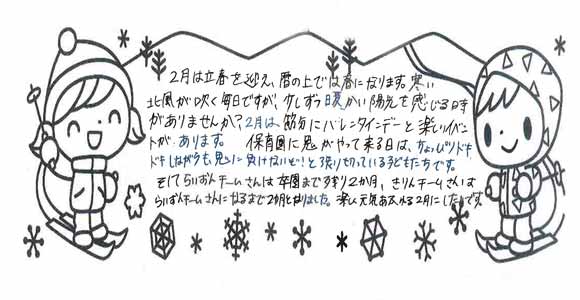 2月は立春を迎え、暦の上では春になります。寒い
北風が吹く毎日ですが、少しずつ暖かい陽光を感じる時
がありませんか?2月は、節分にバレンタインデーと楽しいイベン
トが あります。 保育園に鬼がやって来る日は、ちょっぴりドキ
ドキしながらも鬼に負けないぞ!と張り切っている子どもたちです。
そしてらいおんチームさんは卒園まで残り2か月、きりんチームさんは
らいおんチームさんになるまで2か月となりました。楽しく元気あふれる2月にしたいです